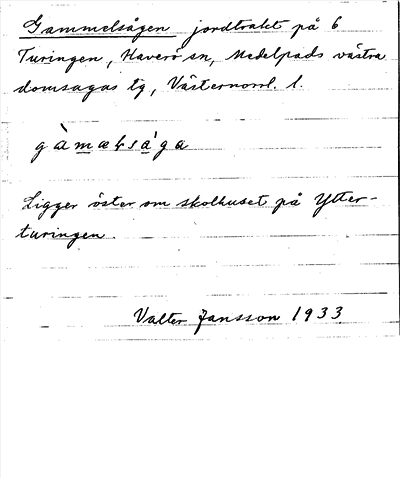 Gammelsågen jordtrakt på 6
Turingen, Haverö sn, Medelpads västra
domsagas tg, Västernorrl. l.
Ligger öster om skolhuset på Ytter-
turingen.
Valter Jansson 1933